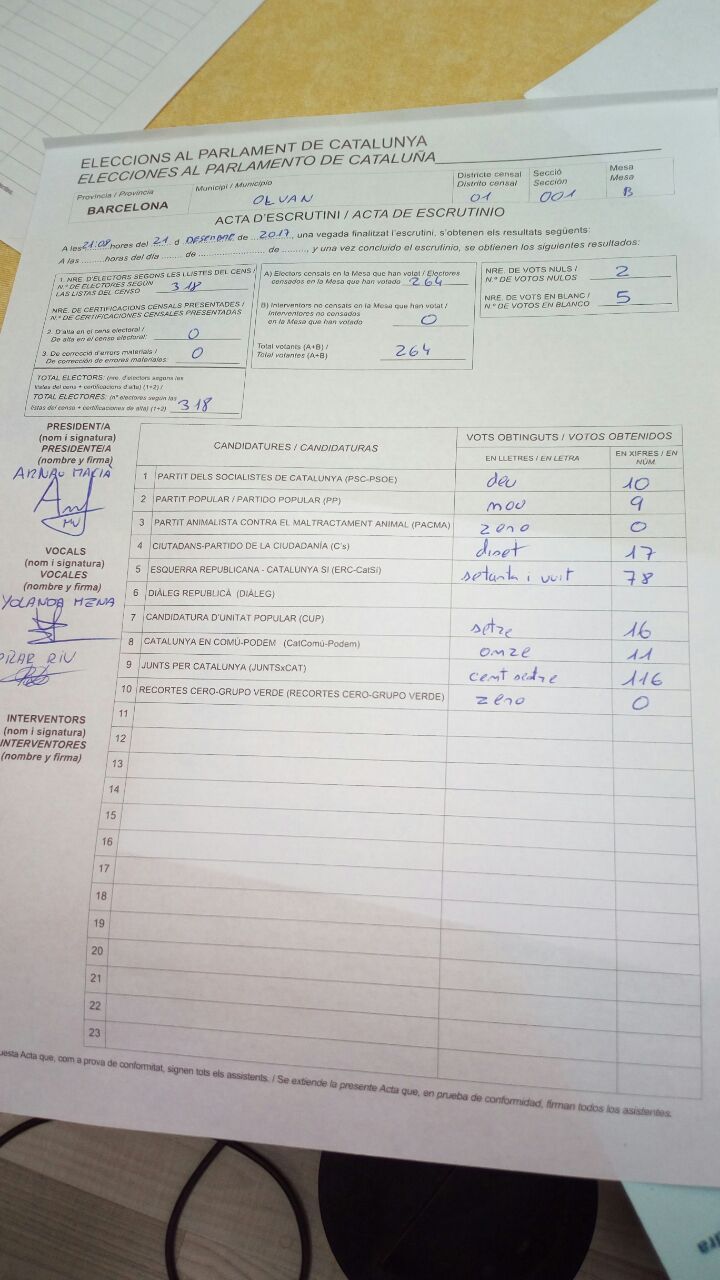 ELECCIONS AL PARLAMENT DE CATALUNYA
ELECCIONES AL PARLAMENTO DE CATALUÑA
Província / Provincia
BARCELONA
Municipi / Municipio
OLVAN
Districte censal
Distrito censal
01
Secció
Sección
001
Mesa
Mesa
B
ACTA D'ESCRUTINI / ACTA DE ESCRUTINIO
A les 21:08 hores del 21 d DESEMBRE de 2017, una vegada finalitzat l'escrutini, s'obtenen els resultats següents:
A las ......... horas del día ....... de ........................ de ........., y una vez concluido el escrutinio, se obtienen los siguientes resultados:
1. NRE. D'ELECTORS SEGONS LES LLISTES DEL CENS /
N.º DE ELECTORES SEGÚN
LAS LISTAS DEL CENSO 318
NRE. DE CERTIFICACIONS CENSALS PRESENTADES /
N.º DE CERTIFICACIONES CENSALES PRESENTADAS
2. D'alta en el cens electoral /
De alta en el censo electoral: 0
3. De correcció d'errors materials /
De corrección de errores materiales: 0
TOTAL ELECTORS: (nre. d'electors segons les
llistes del cens + certificacions d'alta) (1+2) /
TOTAL ELECTORES: (nº electores según las
listas del censo + certificaciones de alta) (1+2) 318
A) Electors censats en la Mesa que han votat / Electores
censados en la Mesa que han votado 264
B) Interventors no censats en la Mesa que han votat /
Interventores no censados
en la Mesa que han votado 0
Total votants (A+B) /
Total votantes (A+B) 264
NRE. DE VOTS NULS /
N.º DE VOTOS NULOS 2
NRE. DE VOTS EN BLANC /
N.º DE VOTOS EN BLANCO 5
PRESIDENT/A
(nom i signatura)
PRESIDENTE/A
(nombre y firma)
ARNAU MACIÀ
VOCALS
(nom i signatura)
VOCALES
(nombre y firma)
YOLANDA MENA
PILAR RIU
INTERVENTORS
(nom i signatura)
INTERVENTORES
(nombre y firma)
CANDIDATURES / CANDIDATURAS
VOTS OBTINGUTS / VOTOS OBTENIDOS
EN LLETRES / EN LETRA
EN XIFRES / EN NÚM.
1 PARTIT DELS SOCIALISTES DE CATALUNYA (PSC-PSOE) deu 10
2 PARTIT POPULAR / PARTIDO POPULAR (PP) nou 9
3 PARTIT ANIMALISTA CONTRA EL MALTRACTAMENT ANIMAL (PACMA) zero 0
4 CIUTADANS-PARTIDO DE LA CIUDADANÍA (C's) diset 17
5 ESQUERRA REPUBLICANA - CATALUNYA SÍ (ERC-CatSí) setanta i vuit 78
6 DIÀLEG REPUBLICÀ (DIÀLEG)
7 CANDIDATURA D'UNITAT POPULAR (CUP) setze 16
8 CATALUNYA EN COMÚ-PODEM (CatComú-Podem) onze 11
9 JUNTS PER CATALUNYA (JUNTSxCAT) cent setze 116
10 RECORTES CERO-GRUPO VERDE (RECORTES CERO-GRUPO VERDE) zero 0
11
12
13
14
15
16
17
18
19
20
21
22
23
uesta Acta que, com a prova de conformitat, signen tots els assistents. / Se extiende la presente Acta que, en prueba de conformidad, firman todos los asistentes.